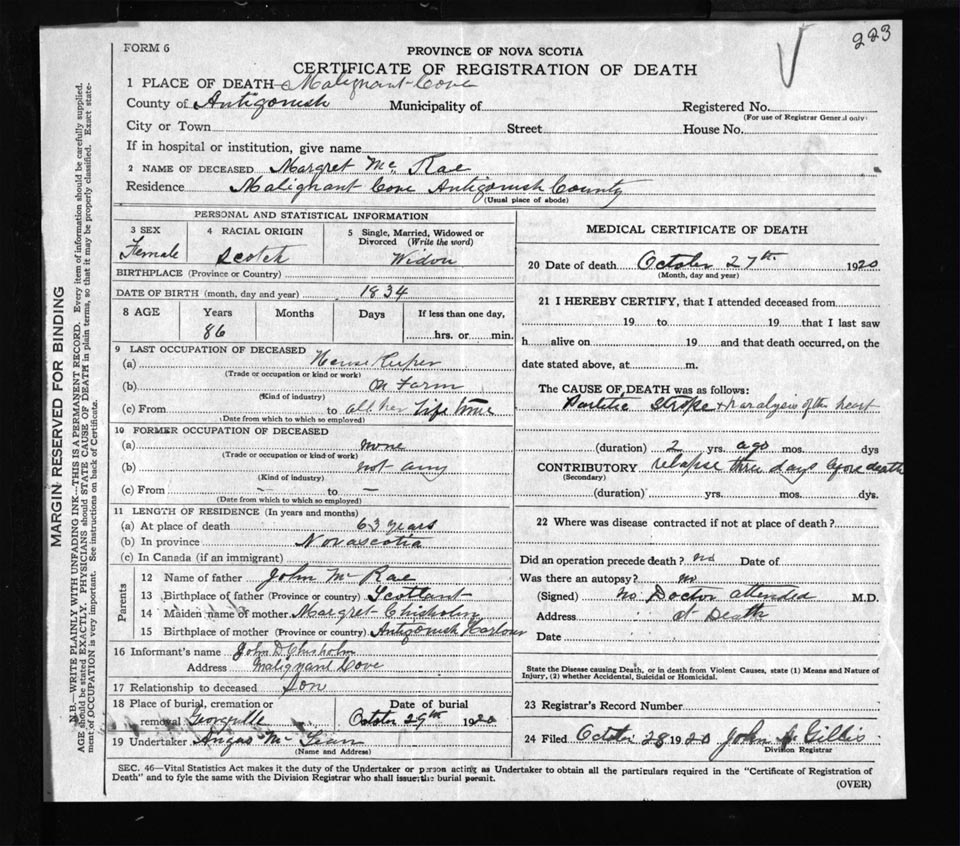 FORM 6
223
PROVINCE OF NOVA SCOTIA
CERTIFICATE OF REGISTRATION OF DEATH
1 PLACE OF DEATH Malignant Cove
County of Antigonish Municipality of Registered No.
(For use of Registrar General only)
City or Town Street House No.
If in hospital or institution, give name
2 NAME OF DECEASED Margret Mc Rae
Residence Malignant Cove Antigonish County
(Usual place of abode)
PERSONAL AND STATISTICAL INFORMATION
3 SEX 4 RACIAL ORIGIN 5 Single, Married, Widowed or Divorced (Write the word)
Female Scotch Widow
BIRTHPLACE (Province or Country)
DATE OF BIRTH (month, day and year) 1834
8 AGE Years Months Days If less than one day,
86 hrs. or min.
9 LAST OCCUPATION OF DECEASED
(a) House Keeper
(Trade or occupation or kind or work)
(b) On Farm
(Kind of industry)
(c) From to all her Life time
(Date from which to which so employed)
10 FORMER OCCUPATION OF DECEASED
(a) none
(Trade or occupation or kind of work)
(b) not any
(Kind of industry)
(c) From — to —
(Date from which to which so employed)
11 LENGTH OF RESIDENCE (In years and months)
(a) At place of death 63 years
(b) In province Novascotia
(c) In Canada (if an immigrant)
Parents
12 Name of father John Mc Rae
13 Birthplace of father (Province or country) Scotlant
14 Maiden name of mother Margret Chisholm
15 Birthplace of mother (Province or country) Antigonish Harbour
16 Informant's name John D Chisholm
Address Malignant Cove
17 Relationship to deceased Son
18 Place of burial, cremation or removal Georgville
Date of burial October 29th 1920
19 Undertaker Angus Mc
(Name and Address)
MEDICAL CERTIFICATE OF DEATH
20 Date of death October 27th 1920
(Month, day and year)
21 I HEREBY CERTIFY, that I attended deceased from
19 to 19 that I last saw
h alive on 19 and that death occurred, on the
date stated above, at m.
The CAUSE OF DEATH was as follows:
Stroke + paralysis of the heart
(duration) 2 yrs. ago mos. dys
CONTRIBUTORY relapse three days before death
(Secondary)
(duration) yrs. mos. dys.
22 Where was disease contracted if not at place of death?
Did an operation precede death? no Date of
Was there an autopsy? no
(Signed) no Doctor attended M.D.
Address at Death
Date
State the Disease causing Death, or in death from Violent Causes, state (1) Means and Nature of
Injury, (2) whether Accidental, Suicidal or Homicidal.
23 Registrar's Record Number
24 Filed October 28 1920 John Gillis
Division Registrar
SEC. 46—Vital Statistics Act makes it the duty of the Undertaker or person acting as Undertaker to obtain all the particulars required in the "Certificate of Registration of
Death" and to fyle the same with the Division Registrar who shall issue the burial permit.
(OVER)
MARGIN RESERVED FOR BINDING
N.B.—WRITE PLAINLY WITH UNFADING INK—THIS IS A PERMANENT RECORD. Every item of information should be carefully supplied.
AGE should be stated EXACTLY. PHYSICIANS should STATE CAUSE OF DEATH in plain terms, so that it may be properly classified. Exact state-
ment of OCCUPATION is very important. See instructions on back of Certificate.